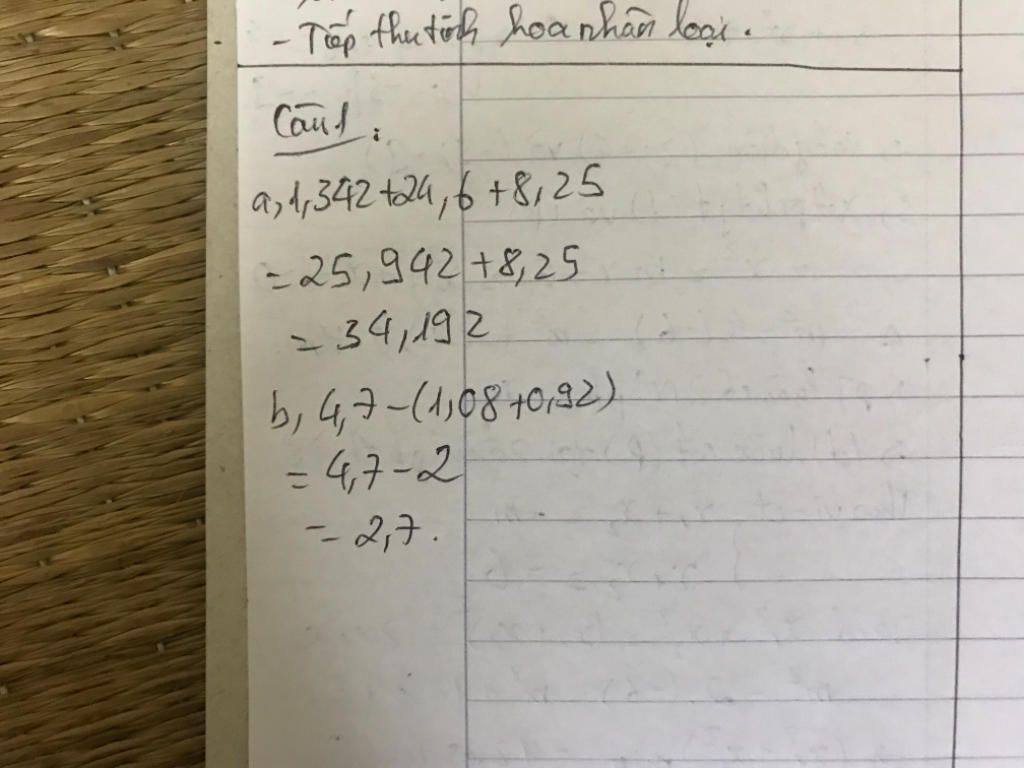 - Tiếp thu tinh hoa nhân loại.
Câu 1:
a, 1,342 + 24,6 + 8,25
= 25,942 + 8,25
= 34,192
b, 4,7 - (1,08 + 0,92)
= 4,7 - 2
= 2,7.